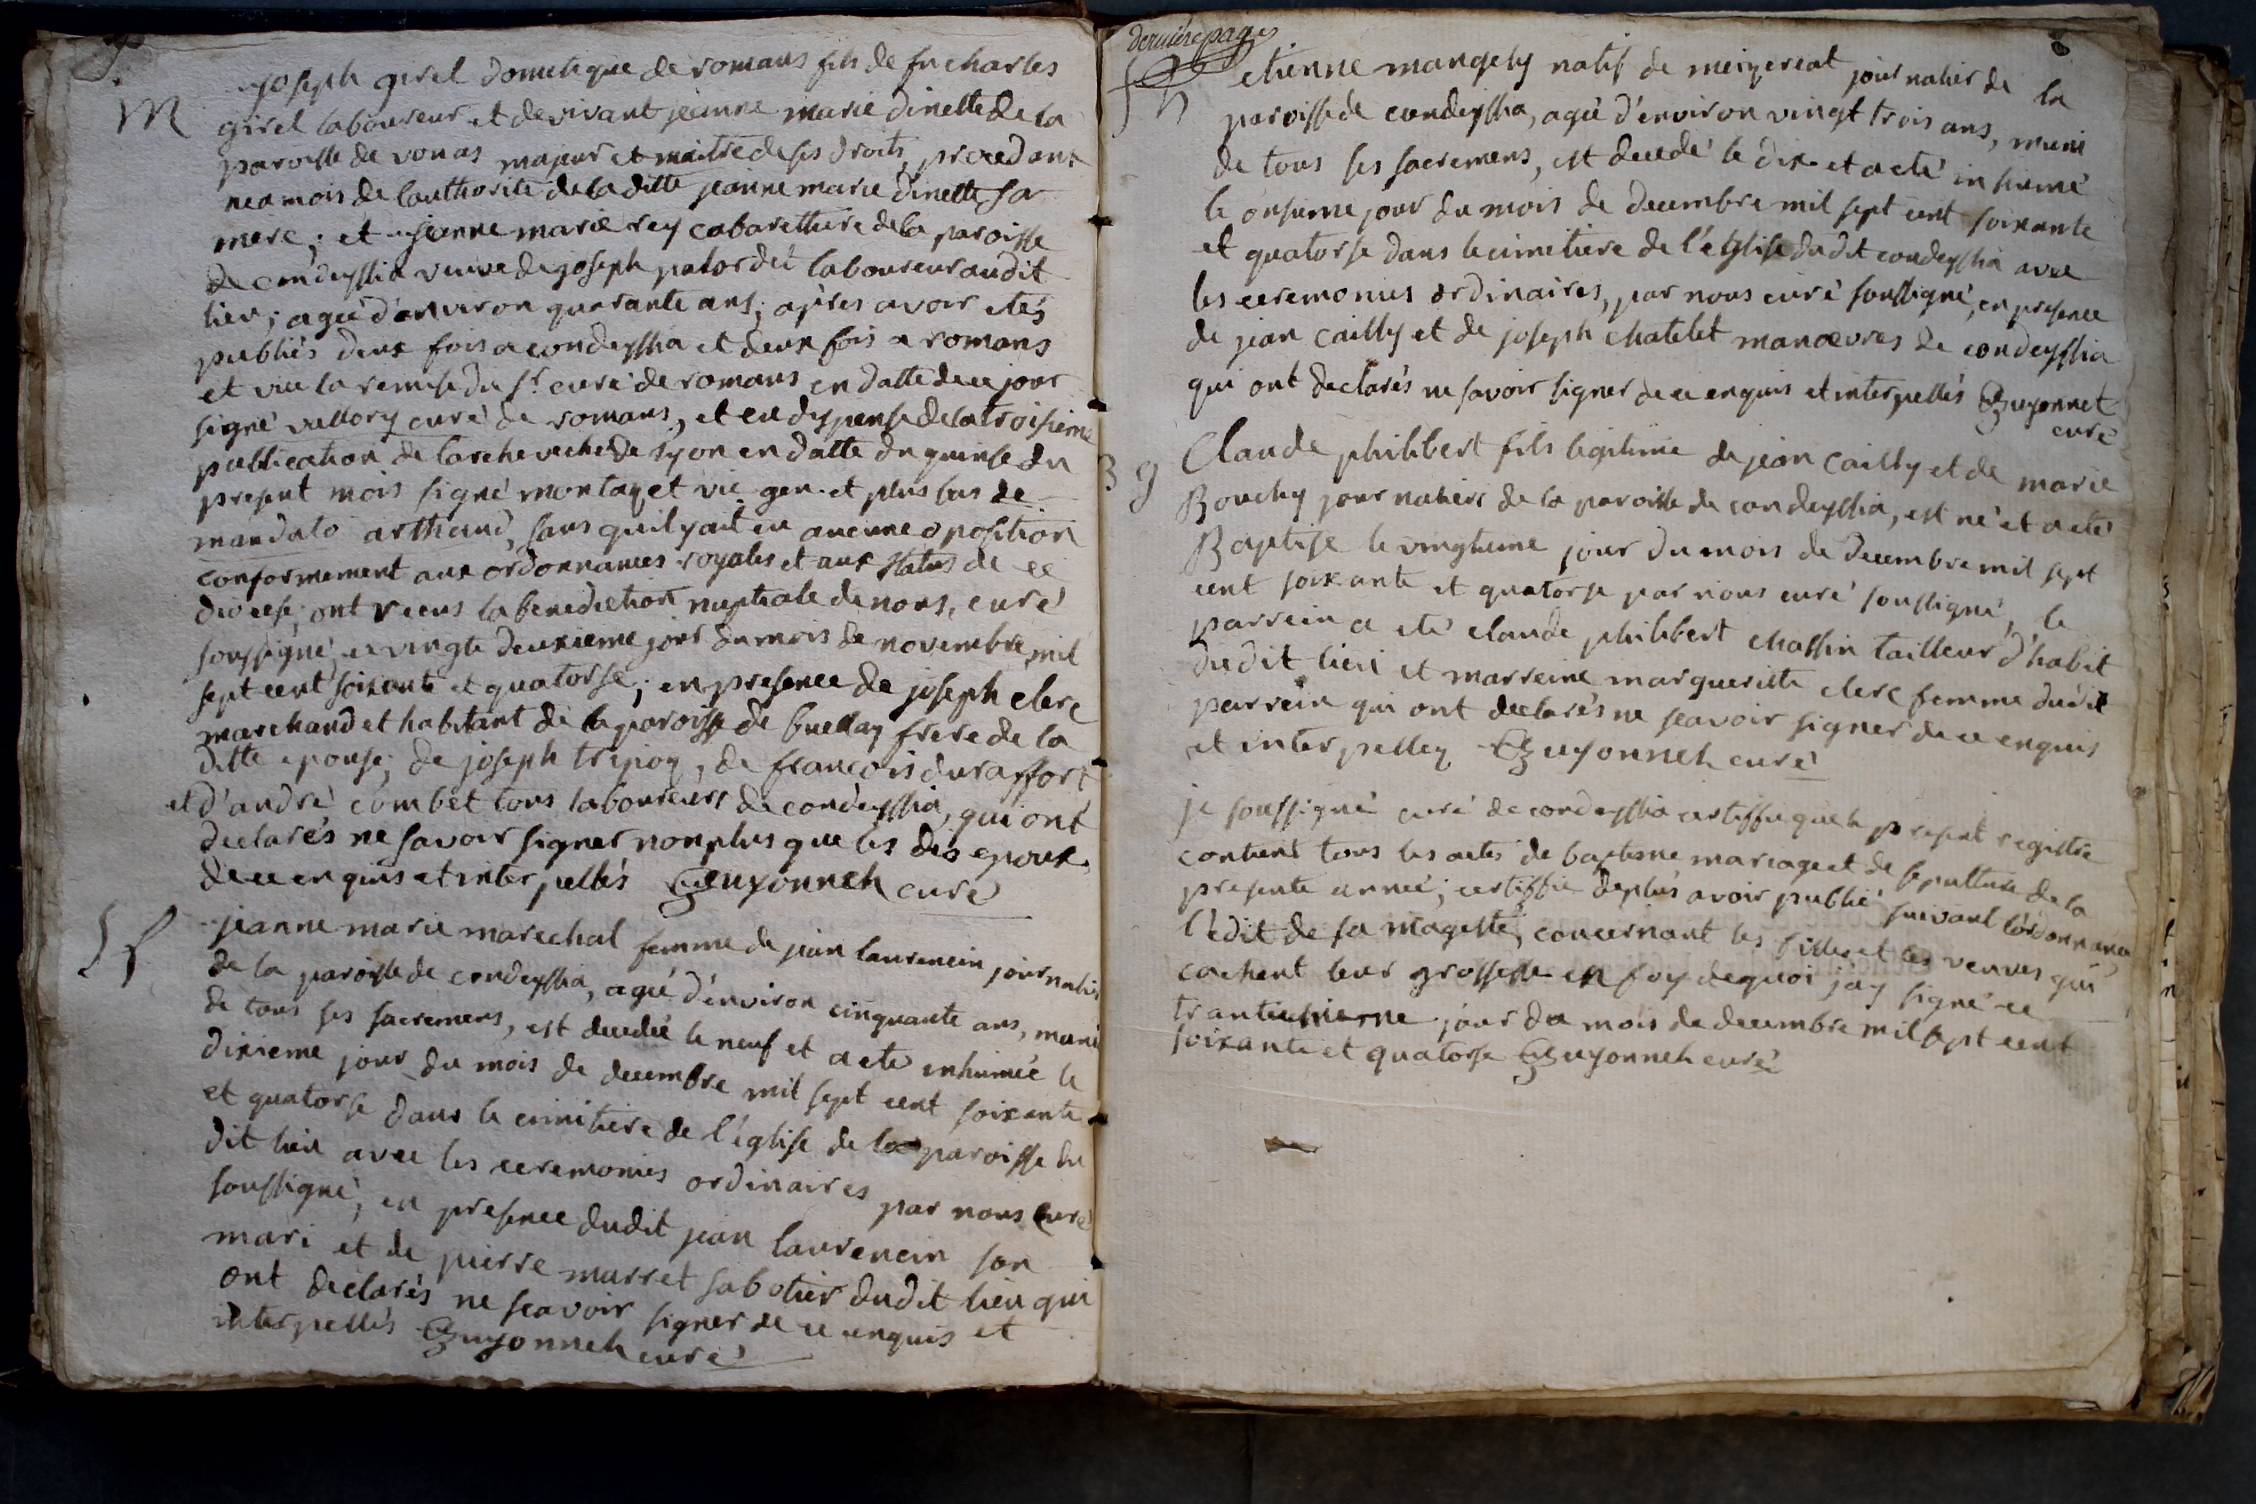 M
joseph girel domestique de romans fils de fu charles
girel laboureur et de vivant jeanne marie dinette de la
paroisse de vonas majeur et maitre de ses droits, procedant
neamois de lauthorité de la ditte jeanne marie dinette sa
mere; et jeanne marie rey cabarettiere de la paroisse
de condeyssia veuve de joseph palordet laboureur audit
lieu; agée d'anviron quarante ans; après avoir etés
publiés deux fois a condeyssia et deux fois a romans
et vue la remise du sr. curé de romans en datte de ce jour
signé vallory curé de romans, et eu dyspense de la troisieme
publication de larcheveché de lyon en datte du quinse du
present mois signé montazet vic. gen. et plus bas de
mandato arthaud, sans quil y ait eu aucune oposition
conformement aux ordonnances royales et aux status de ce
diocese; ont recus la benediction nuptiale de nous, curé
soussigné, ce vingte deuxieme jour du mois de novembre mil
sept cent soixante et quatorse; en presence de joseph clerc
marchand et habitant de la paroisse de buellay frere de la
ditte epouse; de joseph tripoz, de francois duraffort
et d'andré combet tous laboureurs de condeyssia, qui ont
declarés ne savoir signer non plus que les dis epoux,
de ce enquis et interpellés Guyonneh curé
Sf
jeanne marie marechal femme de jean laurencin journalier
de la paroisse de condeyssia, agée d'environ cinquante ans, muni
de tous ses sacremens, est decedée le neuf et a eté inhumée le
dixieme jour du mois de decembre mil sept cent soixante
et quatorse dans le cimitiere de l'église de la paroisse du
dit lieu avec les ceremonies ordinaires par nous curé
soussigné, en presence dudit jean laurencin son
mari et de pierre marret sabotier dudit lieu qui
ont declarés ne scavoir signer de ce enquis et
interpellés Guyonneh curé
derniere pages
8
etienne mangely natif de meizeriat journalier de la
paroisse de condeyssia, agé d'environ vingt trois ans, muni
de tous ses sacremens, est decedé le dix et a eté inhumé
le onsieme jour du mois de decembre mil sept cent soixante
et quatorse dans le cimetiere de l'église dudit condeyssia avec
les ceremonies ordinaires, par nous curé soussigné, en presence
de jean cailly et de joseph chatelet manœuvres de condeyssia
qui ont declarés ne savoir signer de ce enquis et interpellés Guyonnet
curé
B g
Claude philibert fils legitime de jean cailly et de marie
Bouchy journaliers de la paroisse de condeyssia, est né et a eté
Baptise le vingtieme jour du mois de decembre mil sept
cent soixante et quatorse par nous curé soussigné, le
parrein a eté claude philibert chassin tailleur d'habit
dudit lieu et marreine margueritte clerc femme dudit
parrein qui ont declarés ne scavoir signer de ce enquis
et interpellez Guyonneh curé
je soussigné curé de condeyssia certiffie que le present registre
contient tous les actes de baptesme mariage et de sepulture de la
presente année; certiffie deplus avoir publié suivant l'ordonnance,
l'édit de sa magesté, concernant les filles et les veuves qui
cachent leur grossesse en foy dequoi j'ay signé ce
trantiuhieme jour du mois de decembre mil sept cent
soixante et quatorse Guyonneh curé